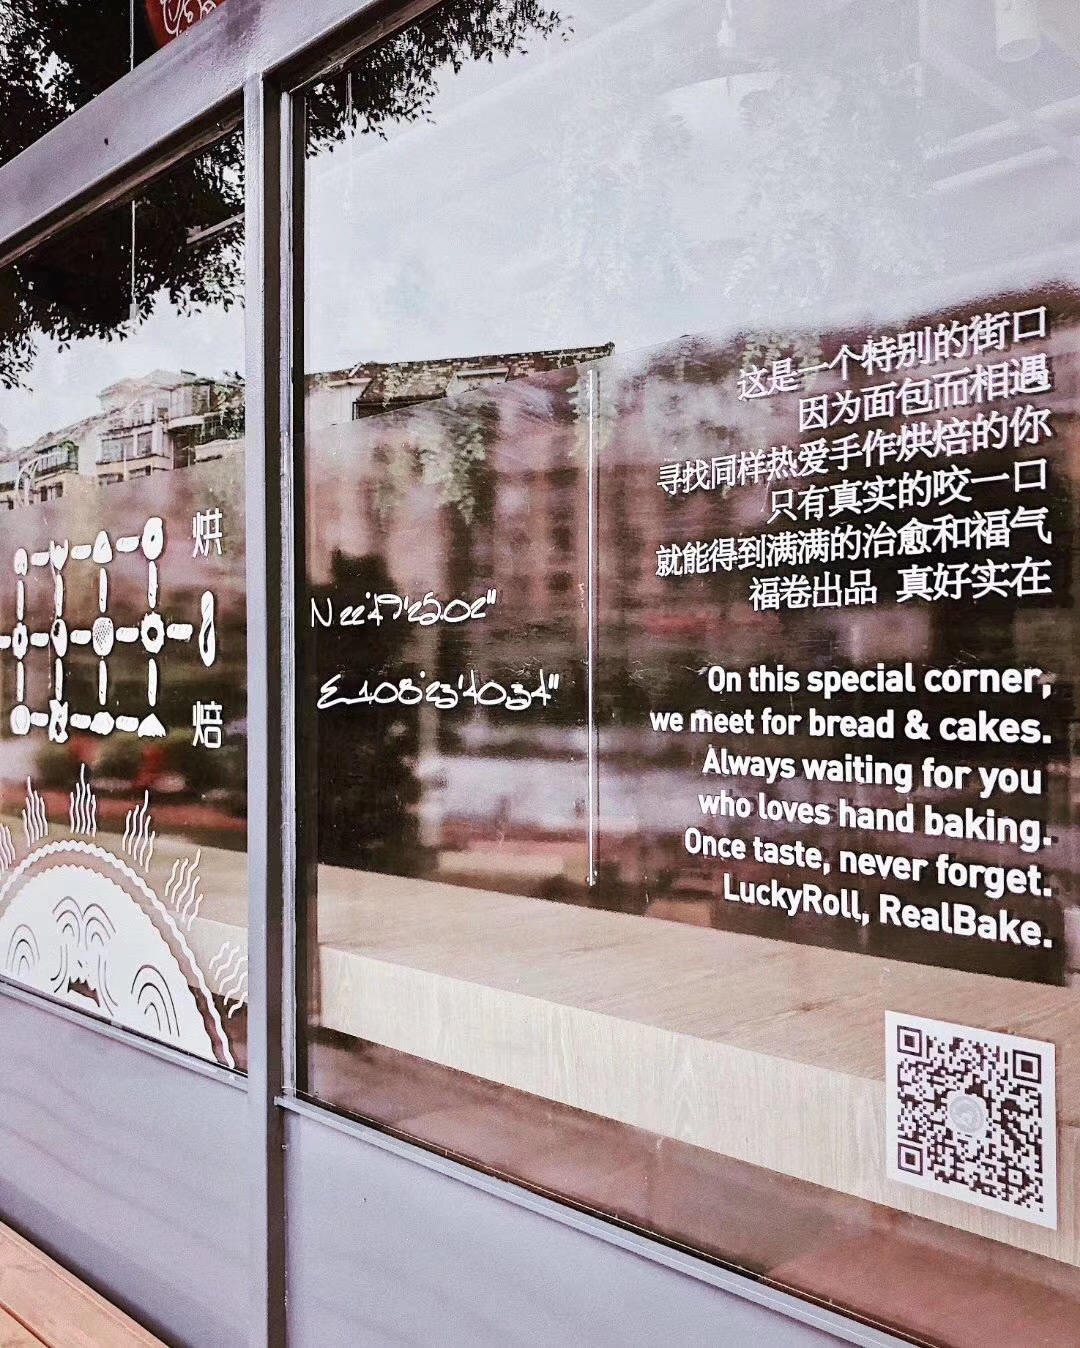 烘
焙
N 22°49'25.02"
E 108°23'40.34"
这是一个特别的街口
因为面包而相遇
寻找同样热爱手作烘焙的你
只有真实的咬一口
就能得到满满的治愈和福气
福卷出品 真好实在
On this special corner,
we meet for bread & cakes.
Always waiting for you
who loves hand baking.
Once taste, never forget.
LuckyRoll, RealBake.